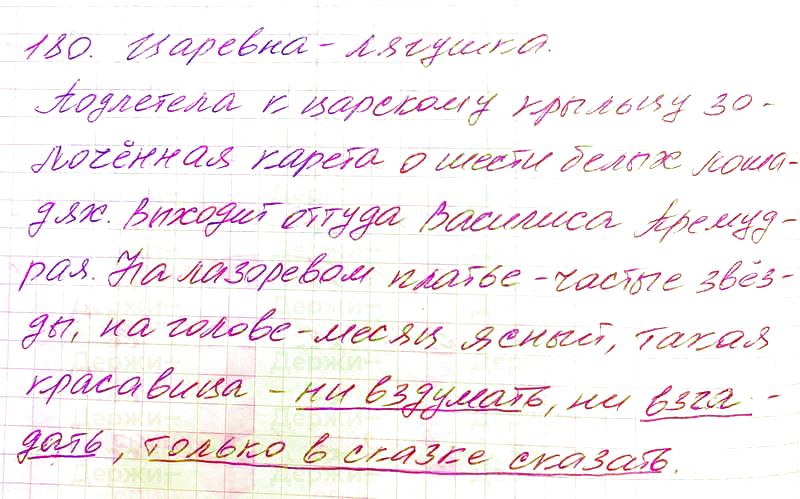 180. Царевна-лягушка.
Подлетела к царскому крыльцу зо-
лочённая карета о шести белых лоша-
дях. Выходит оттуда Василиса Премуд-
рая. На лазоревом платье - частые звёз-
ды, на голове - месяц ясный, такая
красавица - ни вздумать, ни взга-
дать, только в сказке сказать.